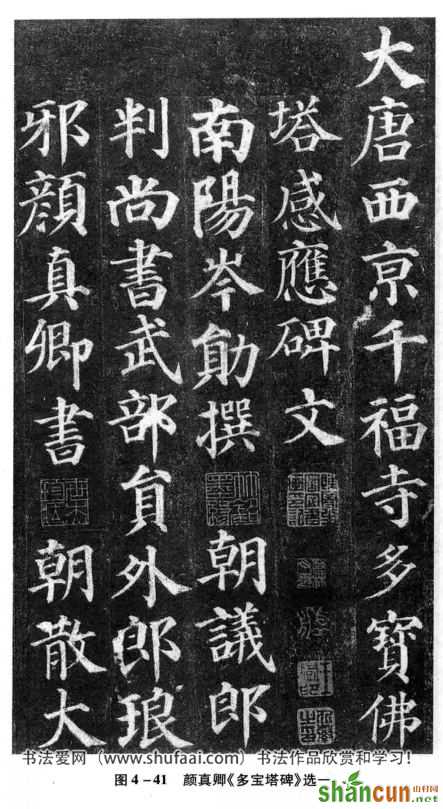 大唐西京千福寺多寶佛
塔感應碑文
南陽岑勛撰 朝議郎
判尚書武部員外郎琅
邪顏真卿書 朝散大
书法爱网（www.shufaai.com）书法作品欣赏和学习！
图 4－41 颜真卿《多宝塔碑》选一
shancun 山村网
.net